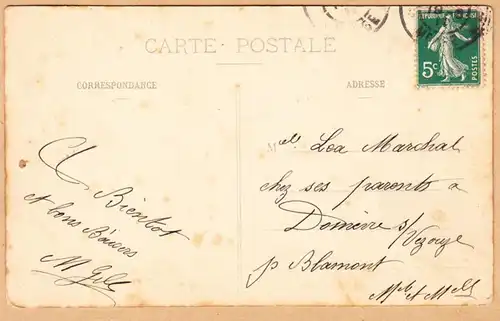 CARTE POSTALE
CORRESPONDANCE
ADRESSE
REPUBLIQUE FRANÇAISE
5c
POSTES
A Bientot
et bons Baisers
M Gill
Melle Lea Marchal
chez ses parents a
Domèvre s/
Vezouze
p Blamont
Mth et Mlle